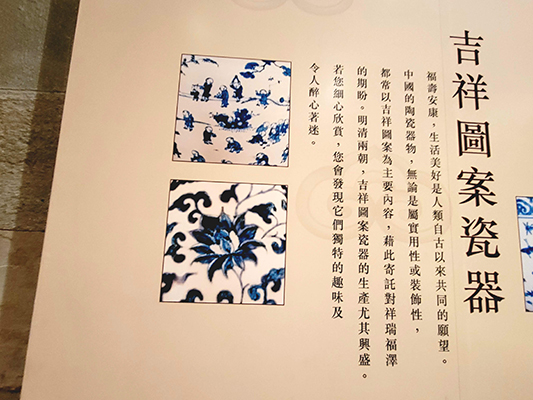 吉祥圖案瓷器
福壽安康，生活美好是人類自古以來共同的願望。
中國的陶瓷器物，無論是屬實用性或裝飾性，
都常以吉祥圖案為主要內容，藉此寄託對祥瑞福澤
的期盼。明清兩朝，吉祥圖案瓷器的生產尤其興盛。
若您細心欣賞，您會發現它們獨特的趣味及
令人醉心著迷。